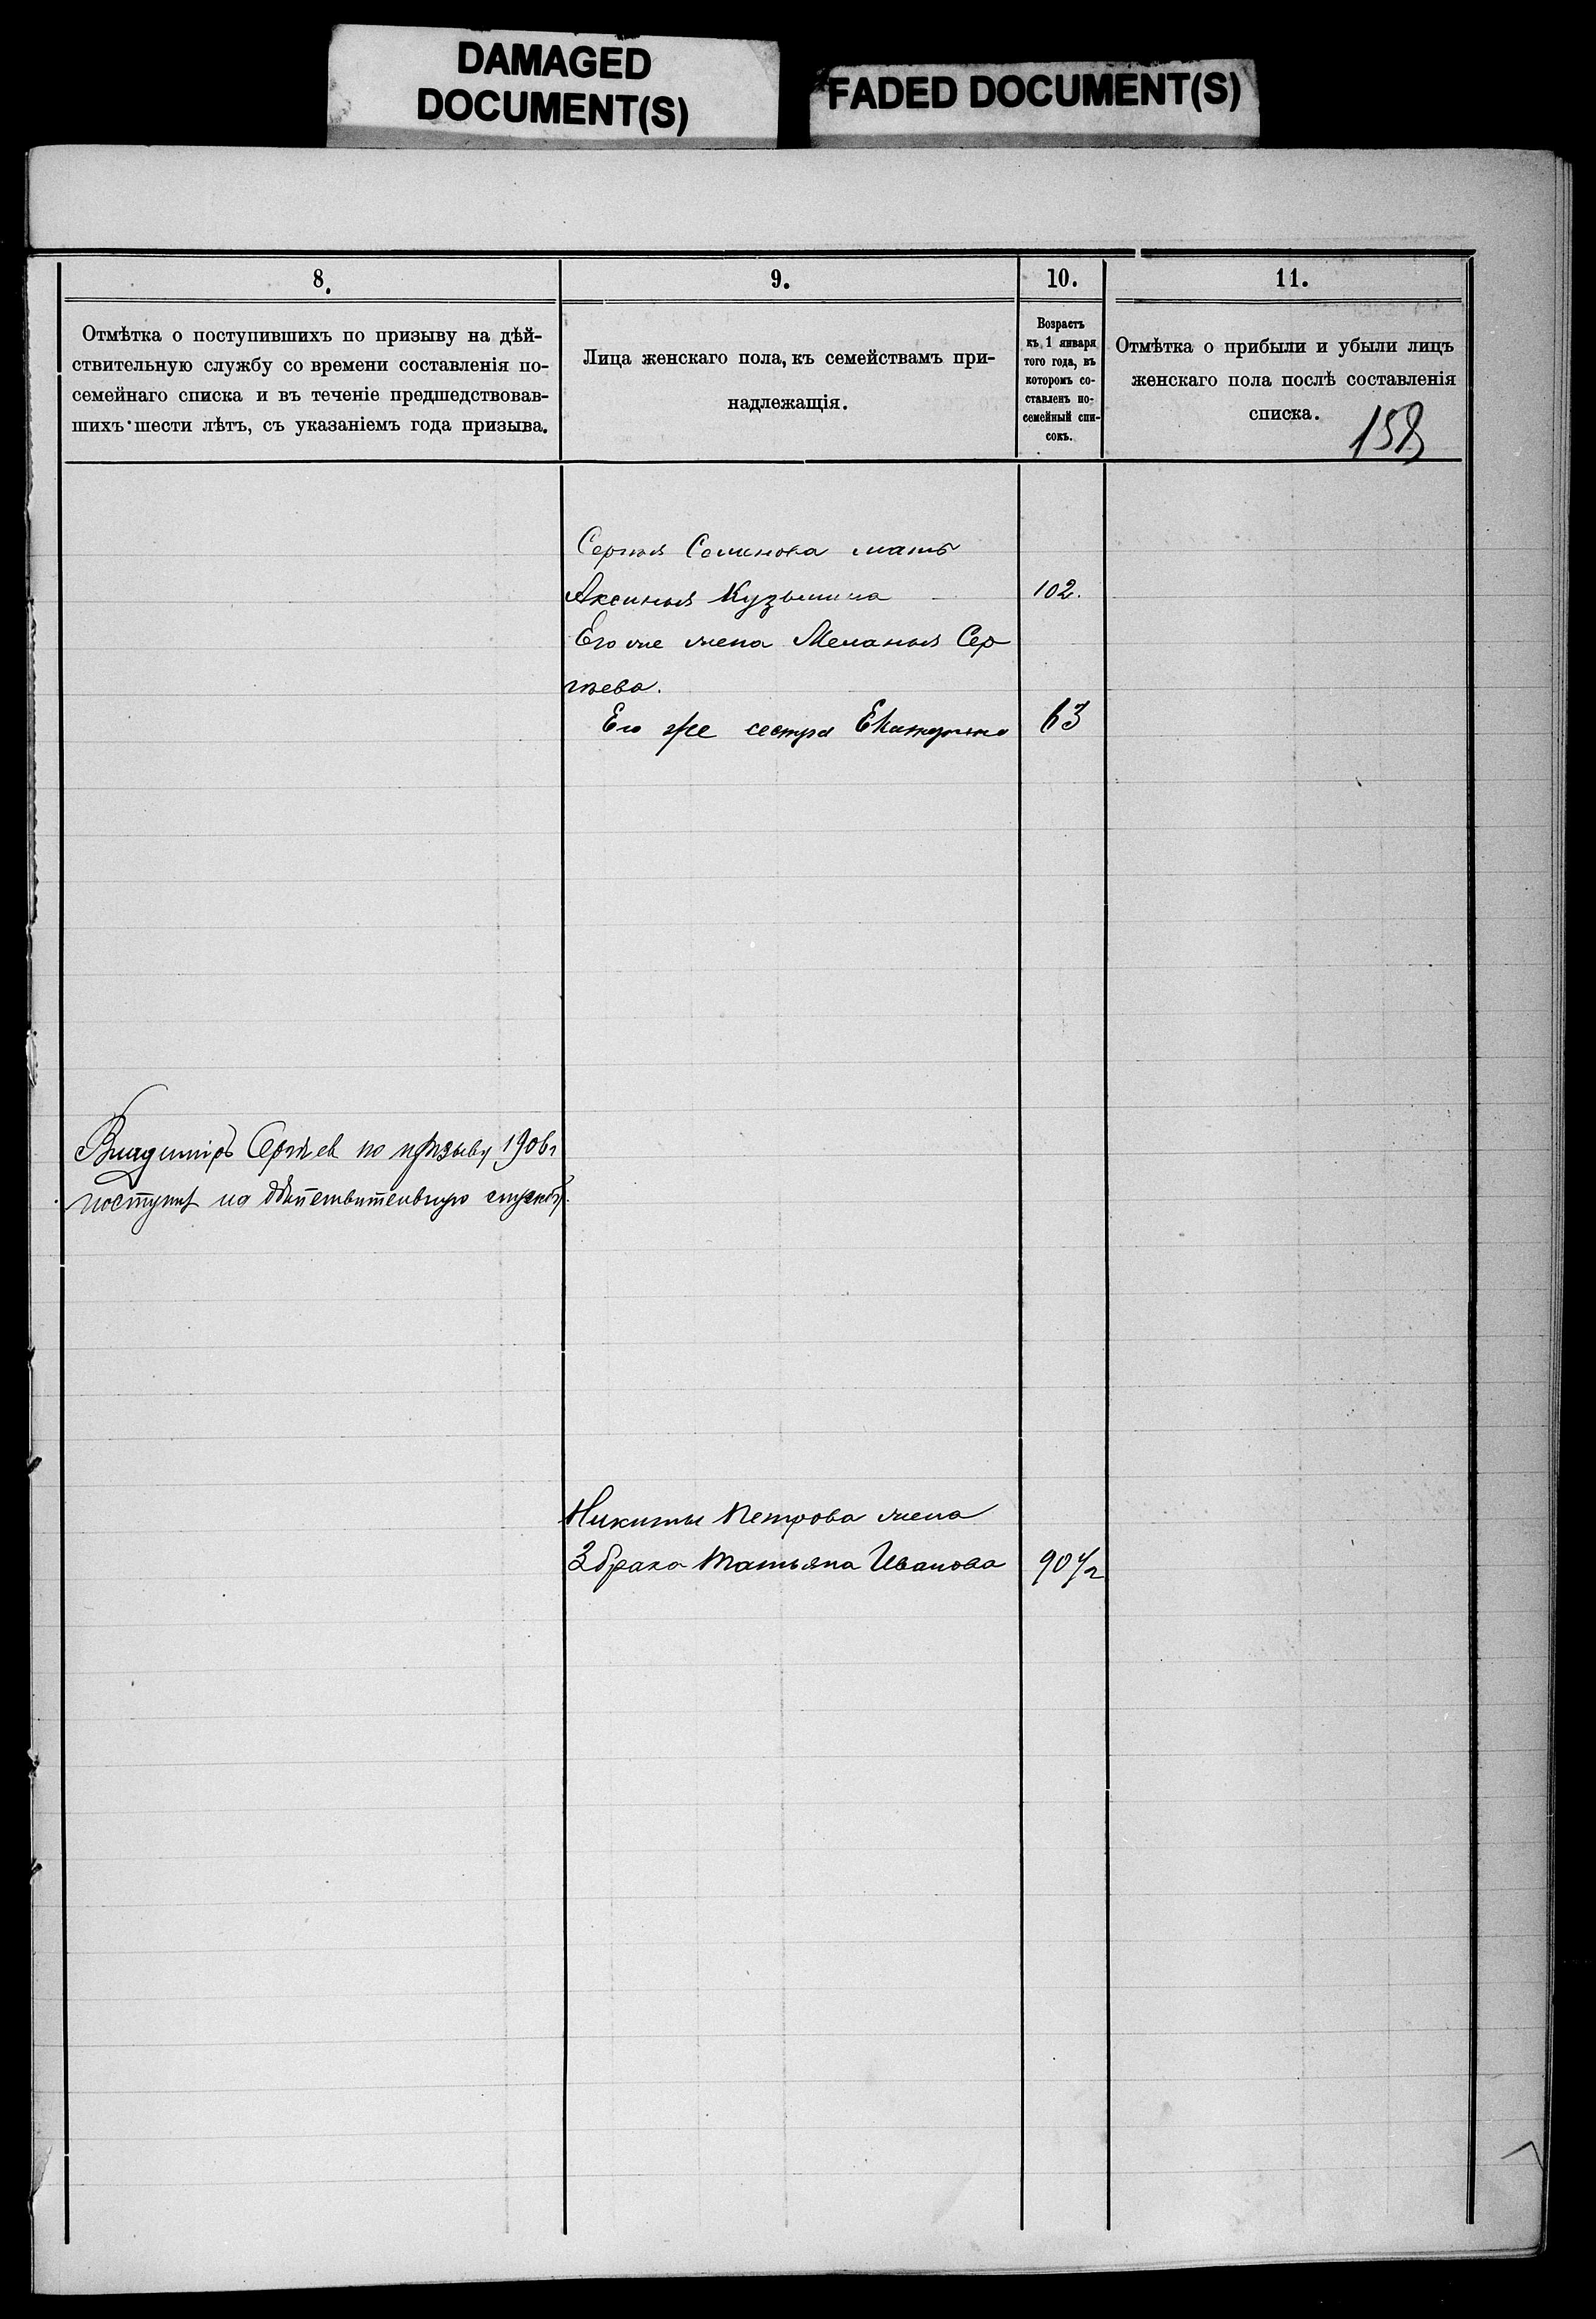 DAMAGED
DOCUMENT(S)
FADED DOCUMENT(S)
8.
Отмѣтка о поступившихъ по призыву на дѣй-
ствительную службу со времени составленія по-
семейнаго списка и въ теченіе предшедствовав-
шихъ шести лѣтъ, съ указаніемъ года призыва.
9.
Лица женскаго пола, къ семействамъ при-
надлежащія.
10.
Возрастъ
къ 1 января
того года, въ
которомъ со-
ставленъ по-
семейный спи-
сокъ.
11.
Отмѣтка о прибыли и убыли лицъ
женскаго пола послѣ составленія
списка.
158
Сергѣя Семенова мать
Аксинья Кузьмина 102.
Его же жена Меланья Сер
гѣева.
Его же сестра Екатерина 63
Владиміръ Сергѣев по призыву 1906г
поступил на дѣйствительную службу.
Никиты Петрова жена
3 брака Татьяна Иванова 90